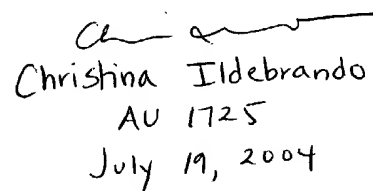 Christina Ildebrando
AU 1725
July 19, 2004